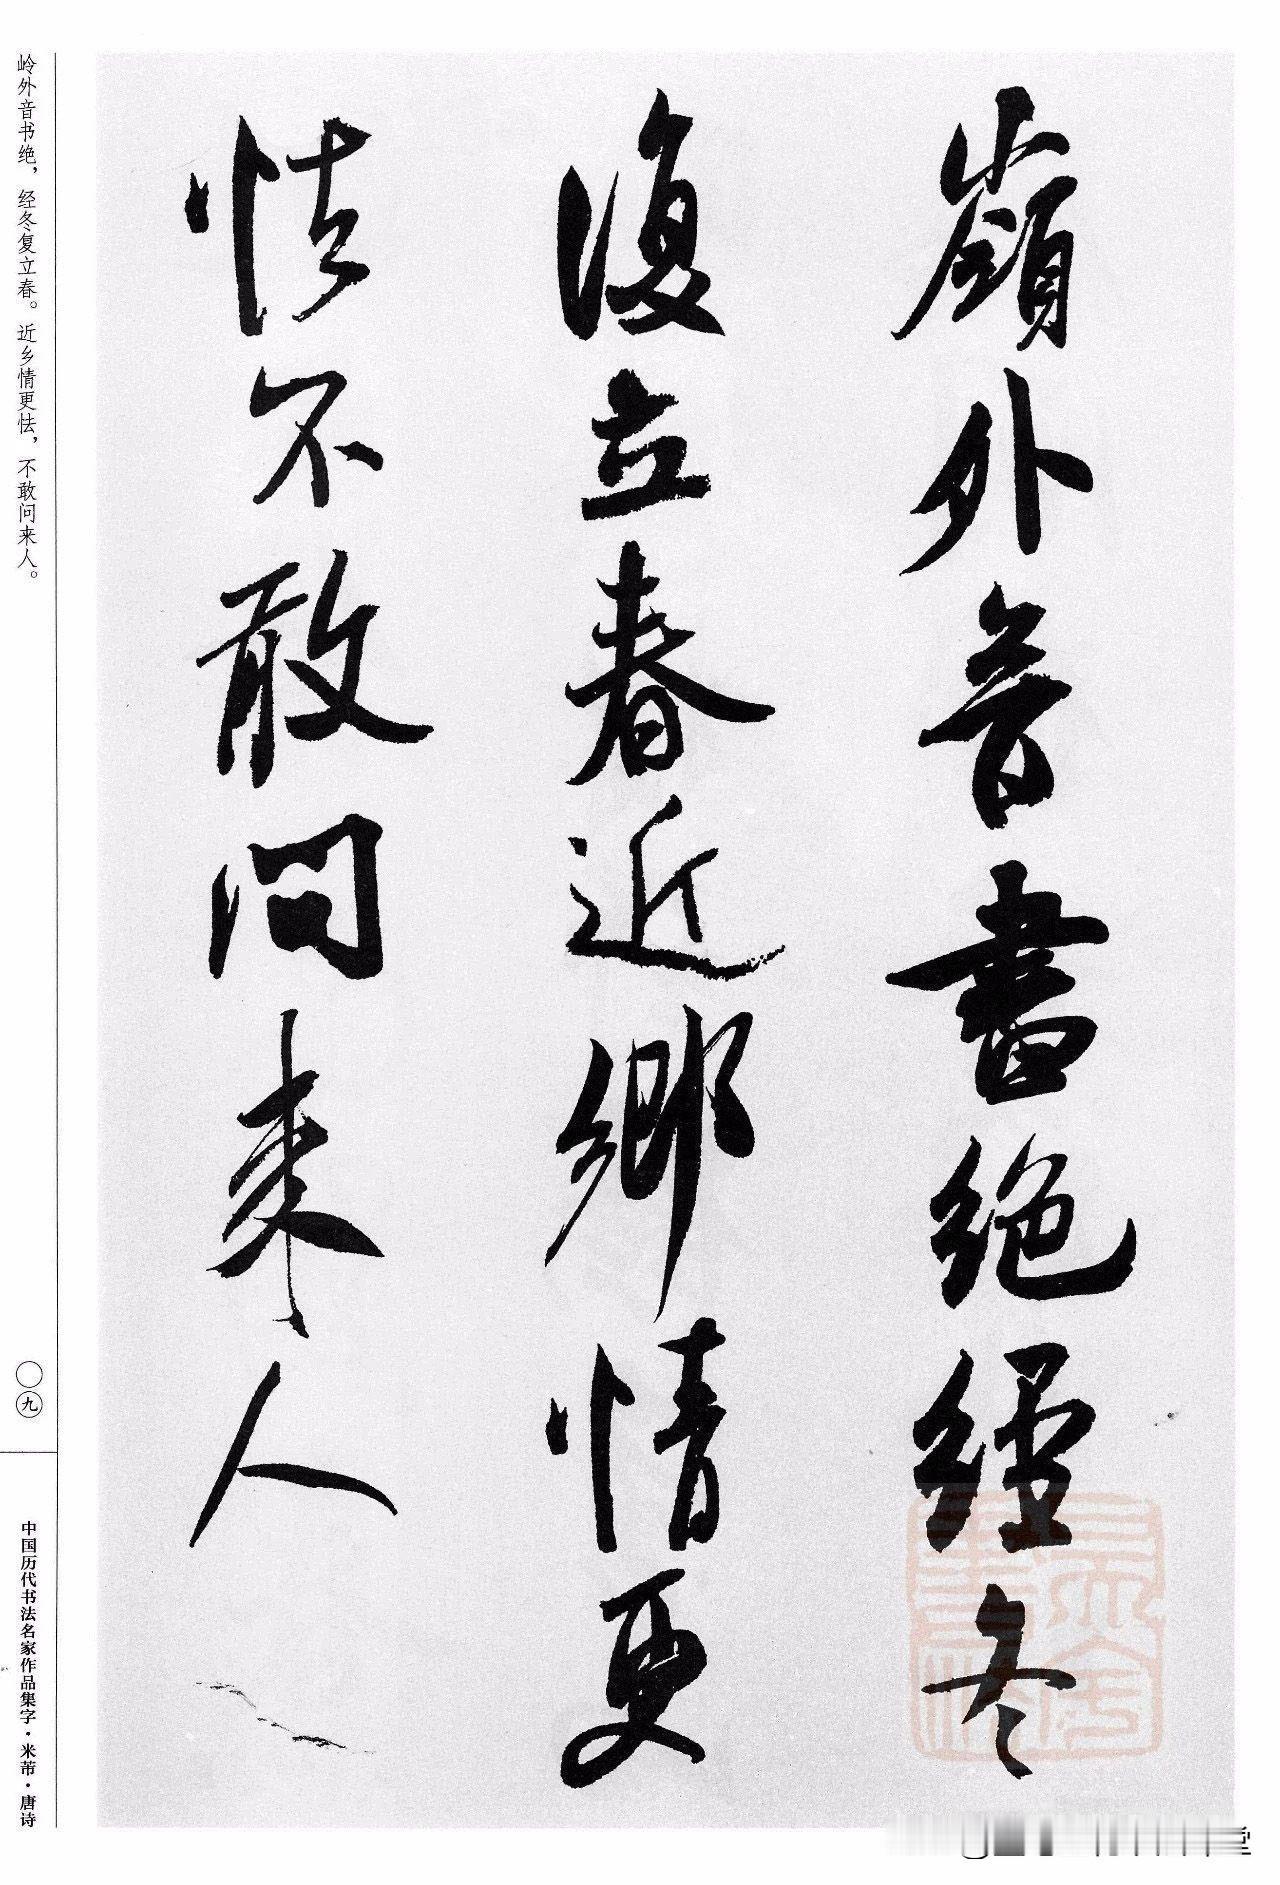 嶺外音書絕經冬
復立春近鄉情更
怯不敢問来人
岭外音书绝，经冬复立春。近乡情更怯，不敢问来人。
〇九
中国历代书法名家作品集字·米芾·唐诗